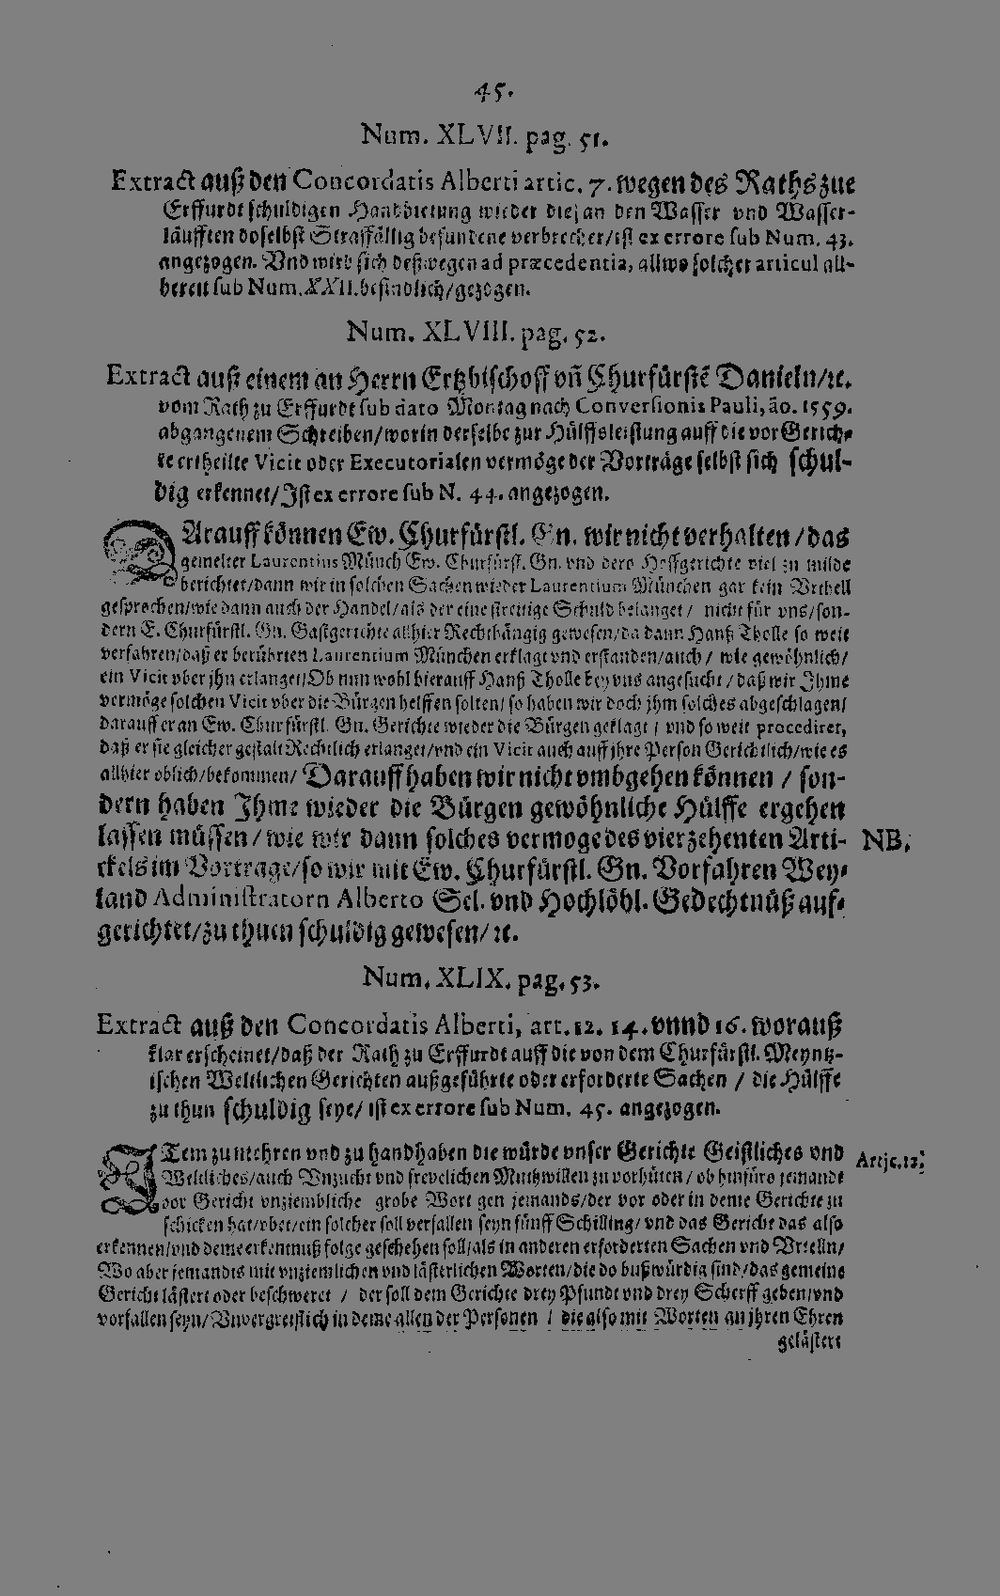 45.
Num. XLVII. pag. 51.
Extract auß den Concordatis Alberti artic. 7. wegen des Raths zue
Erffurdt schuldigen Handbietung wieder die/an den Wasser vnd Wasser-
läufften doselbst Straffällig befundene verbrecher/ist ex errore sub Num. 43.
angezogen. Vnd wird sich deßwegen ad præcedentia, allwo solcher articul all-
bereit sub Num. XXII. befindlich/gezogen.
Num. XLVIII. pag. 52.
Extract auß einem an Herrn Ertzbischoff vñ Churfürstẽ Danieln/ꝛc.
vom Rath zu Erffurdt sub dato Montag nach Conversionis Pauli, ão. 1559.
abgangenem Schreiben/worin derselbe zur Hülffsleistung auff die vor Gerich-
te ertheilte Vicit oder Executorialen vermöge der Vorträge selbst sich schul-
dig erkennet/Ist ex errore sub N. 44. angezogen.
DArauff können Ew. Churfürstl. Gn. wir nicht verhalten/das
gemelter Laurentius Münch Ew. Churfürstl. Gn. vnd dero Hoffgerichte viel zu milde
berichtet/dann wir in solchen Sachen wieder Laurentium München gar kein Vrtheil
gesprochen/wie dann auch der Handel/als der eine streitige Schuld belanget/ nicht für vns/son-
dern E. Churfürstl. Gn. Gastgerichte allhier Rechthängig gewesen/da dann Hanß Tholle so weit
verfahren/daß er berührten Laurentium München erklagt vnd erstanden/auch/ wie gewöhnlich/
ein Vicit vber jhn erlanget/Ob nun wohl hierauff Hanß Tholle bey vns angesucht/daß wir Ihme
vermöge solchen Vicit vber die Bürgen helffen solten/so haben wir doch jhm solches abgeschlagen/
darauff er an Ew. Churfürstl. Gn. Gerichte wieder die Bürgen geklagt/ vnd so weit procediret,
daß er sie gleicher gestalt Rechtlich erlanget/vnd ein Vicit auch auff jhre Person Gerichtlich/wie es
allhier vblich/bekommen/ Darauff haben wir nicht vmbgehen können/ son-
dern haben Ihme wieder die Bürgen gewöhnliche Hülffe ergehen
lassen müssen/wie wir dann solches vermoge des vierzehenten Arti- NB.
ckels im Vortrage/so wir mit Ew. Churfürstl. Gn. Vorfahren Wey-
land Administratorn Alberto Sel. vnd Hochlöbl. Gedechtnüß auf-
gerichtet/zu thuen schuldig gewesen/ꝛc.
Num. XLIX. pag. 53.
Extract auß den Concordatis Alberti, art. 12. 14. vnnd 16. worauß
klar erscheinet/daß der Rath zu Erffurdt auff die von dem Churfürstl. Meyntz-
ischen Weltlichen Gerichten außgeführte oder erforderte Sachen/ die Hülffe
zu thun schuldig seye/ ist ex errore sub Num. 45. angezogen.
ITem zu mehren vnd zu handhaben die würde vnser Gerichte Geistliches vnd Artic. 12.
Weltliches/auch Vnzucht vnd frevelichen Muthwillen zu vorhüten/ ob hinfüro jemandt
vor Gericht vnziembliche grobe Wort gen jemands/der vor oder in deme Gerichte zu
schicken hat/ein solcher soll verfallen seyn fünff Schilling/ vnd das Gericht das also
erkennen/vnd deme erkentnuß folge geschehen soll/als in anderen erforderten Sachen vnd Vrteiln/
Wo aber jemandts mit vnziemlichen vnd lästerlichen Worten/die do bußwürdig sind/das gemeine
Gericht lästert oder beschweret/ der soll dem Gerichte drey Pfundt vnd drey Scherff geben/vnd
vorfallen seyn/Vnvergreiflich in deme allen der Personen/ die also mit Worten an jhren Ehren
gelästert